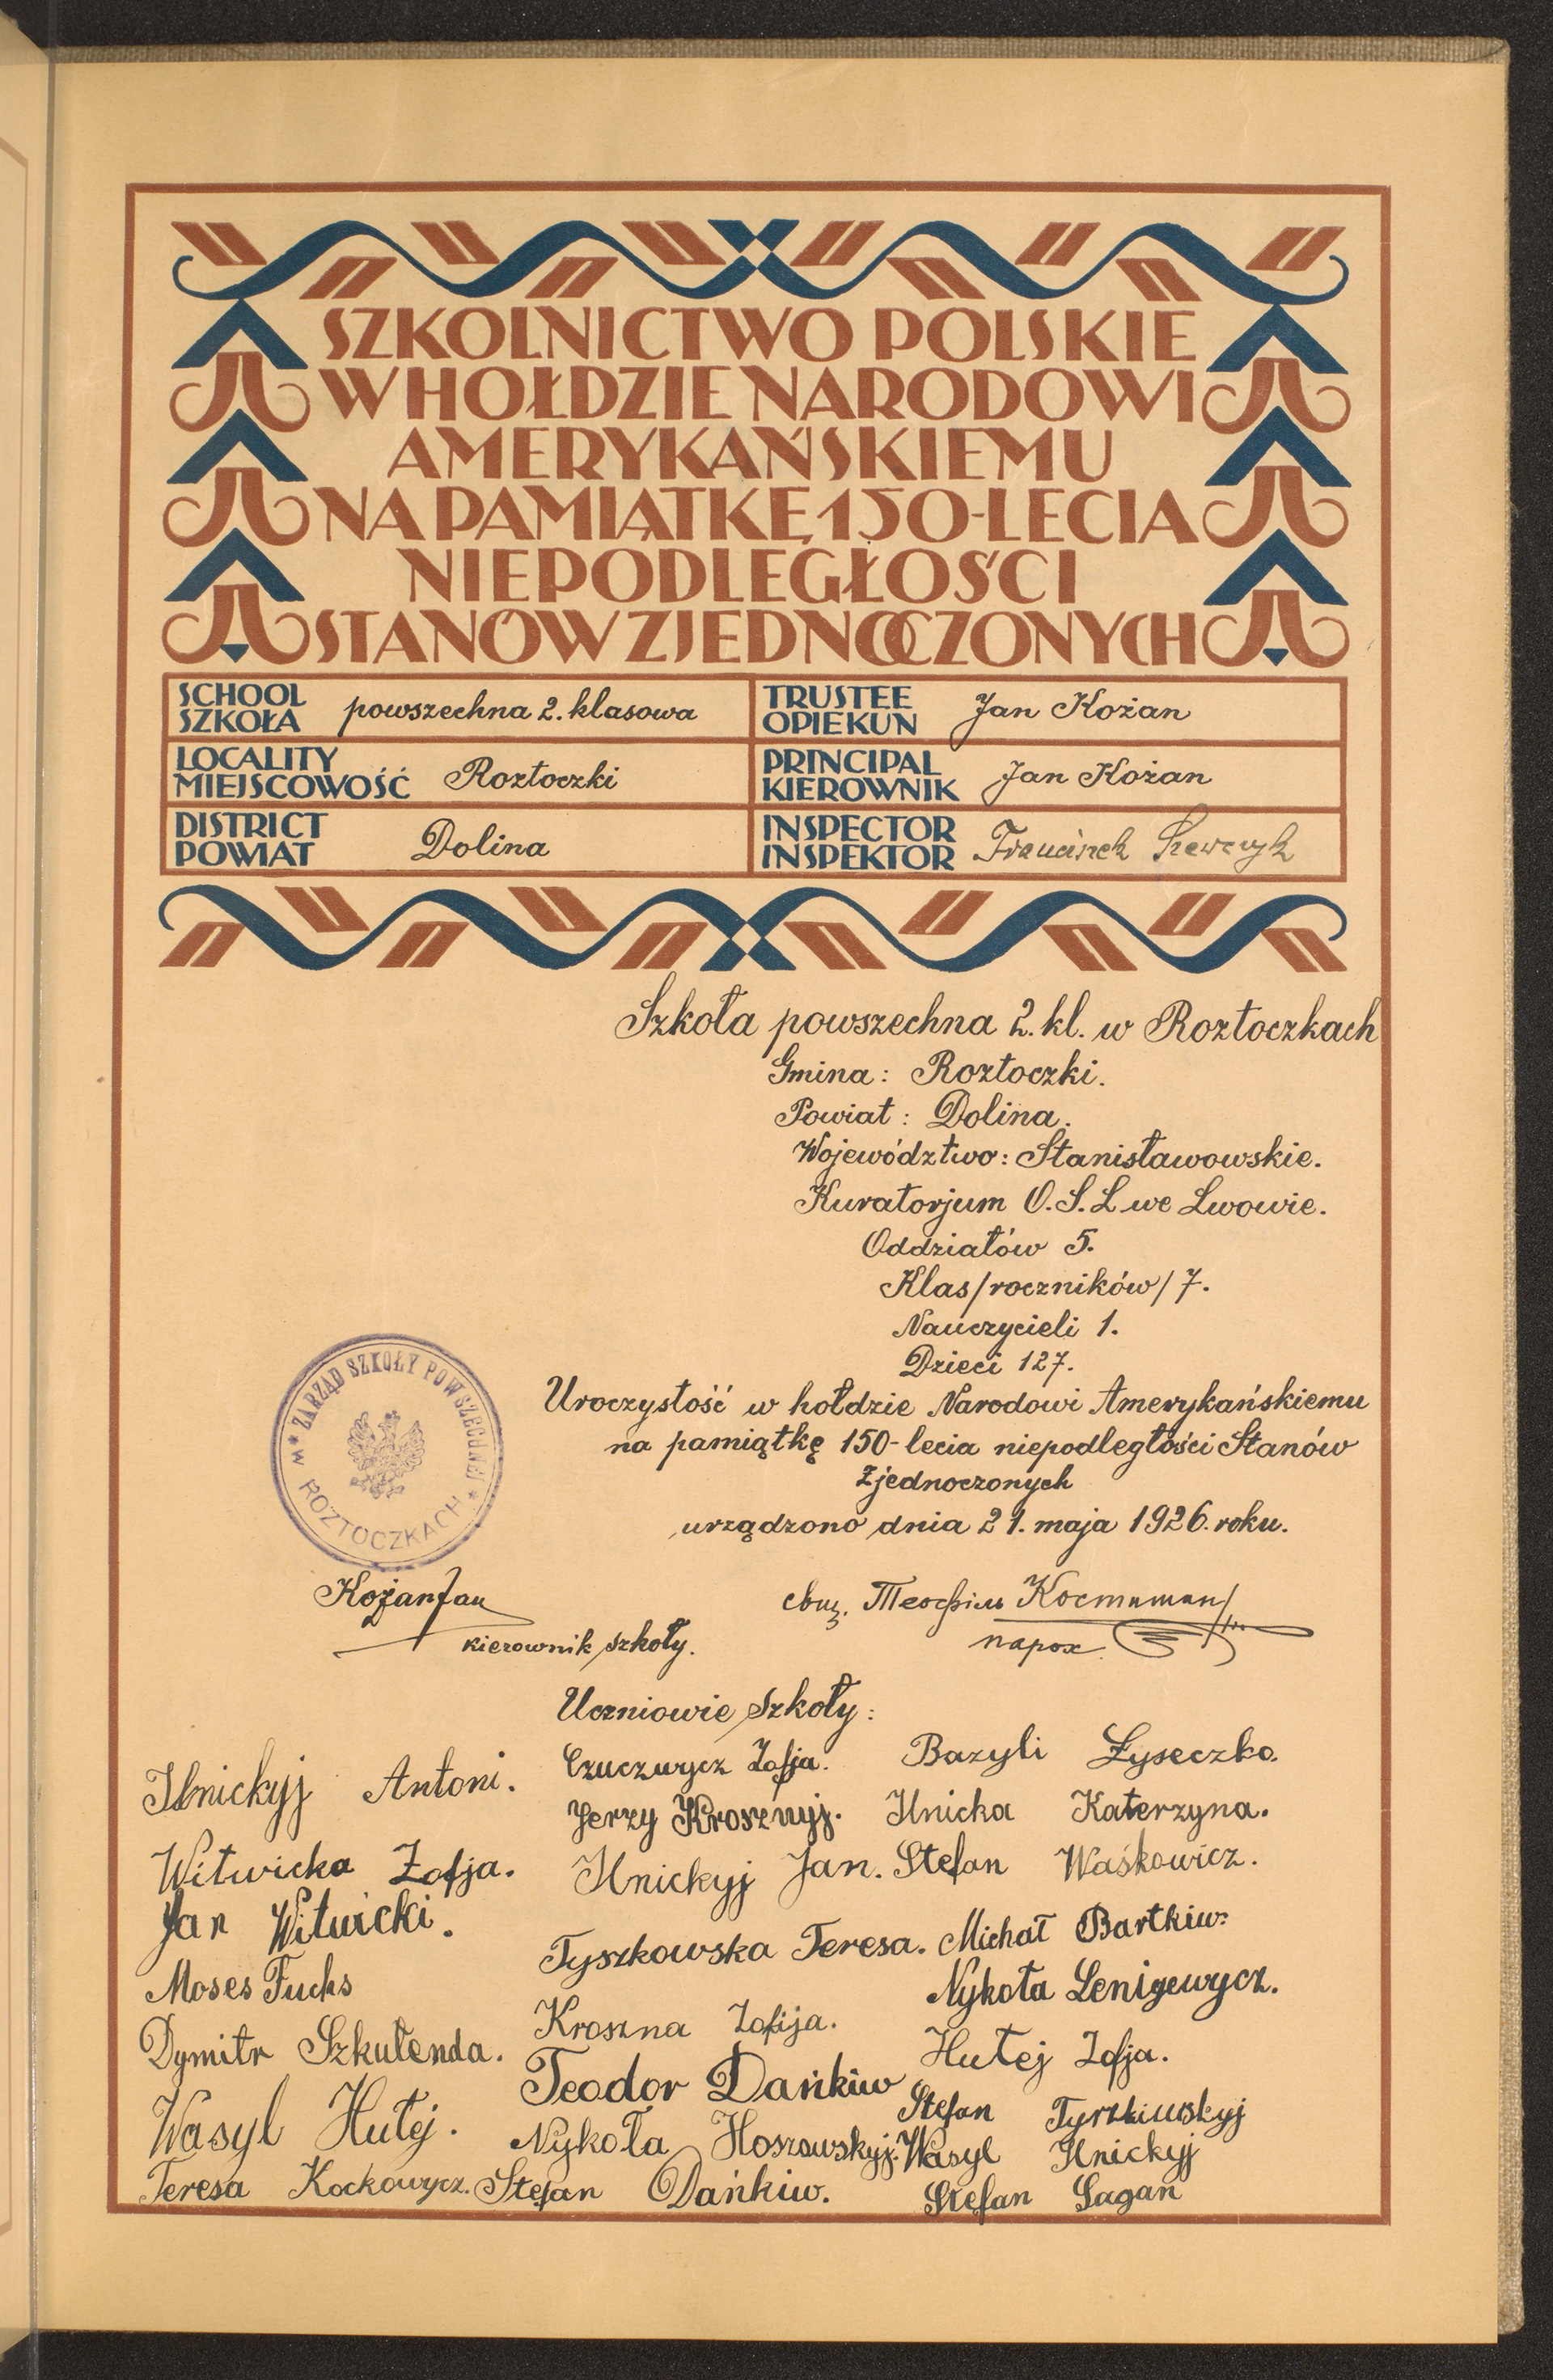 SZKOLNICTWO POLSKIE
W HOŁDZIE NARODOWI
AMERYKAŃSKIEMU
NA PAMIĄTKĘ 150-LECIA
NIEPODLEGŁOŚCI
STANÓW ZJEDNOCZONYCH
SCHOOL
SZKOŁA powszechna 2. klasowa
TRUSTEE
OPIEKUN Jan Kożan
LOCALITY
MIEJSCOWOŚĆ Roztoczki
PRINCIPAL
KIEROWNIK Jan Kożan
DISTRICT
POWIAT Dolina
INSPECTOR
INSPEKTOR Franciszek Szewczyk
Szkoła powszechna 2. kl. w Roztoczkach
Gmina: Roztoczki.
Powiat: Dolina.
Województwo: Stanisławowskie.
Kuratorjum O.S.L we Lwowie.
Oddziałów 5.
Klas /roczników/ 7.
Nauczycieli 1.
Dzieci 127.
Uroczystość w hołdzie Narodowi Amerykańskiemu
na pamiątkę 150-lecia niepodległości Stanów
Zjednoczonych
urządzono dnia 21. maja 1926. roku.
* ZARZĄD SZKOŁY POWSZECHNEJ *
w ROZTOCZKACH
Kożan Jan
kierownik szkoły.
Теофіль
парох
Uczniowie szkoły:
Ilnickyj Antoni.
Witwicka Zofja.
Jan Witwicki.
Moses Fuchs
Dymitr Szkulenda.
Wasyl Hutej.
Teresa Kockowycz.
Czuczwycz Zofja.
Jerzy Krosznyj.
Ilnickyj Jan.
Tyszkowska Teresa.
Kroszna Zofija.
Teodor Dańkiw
Nykoła Hoszowskyj.
Stefan Dańkiw.
Bazyli Łyseczko.
Ilnicka Katerzyna.
Stefan Waśkowicz.
Michał Bartkiw.
Nykoła Lenigewycz.
Hutej Zofja.
Stefan Tyszkiwskyj
Wasyl Ilnickyj
Stefan Sagan